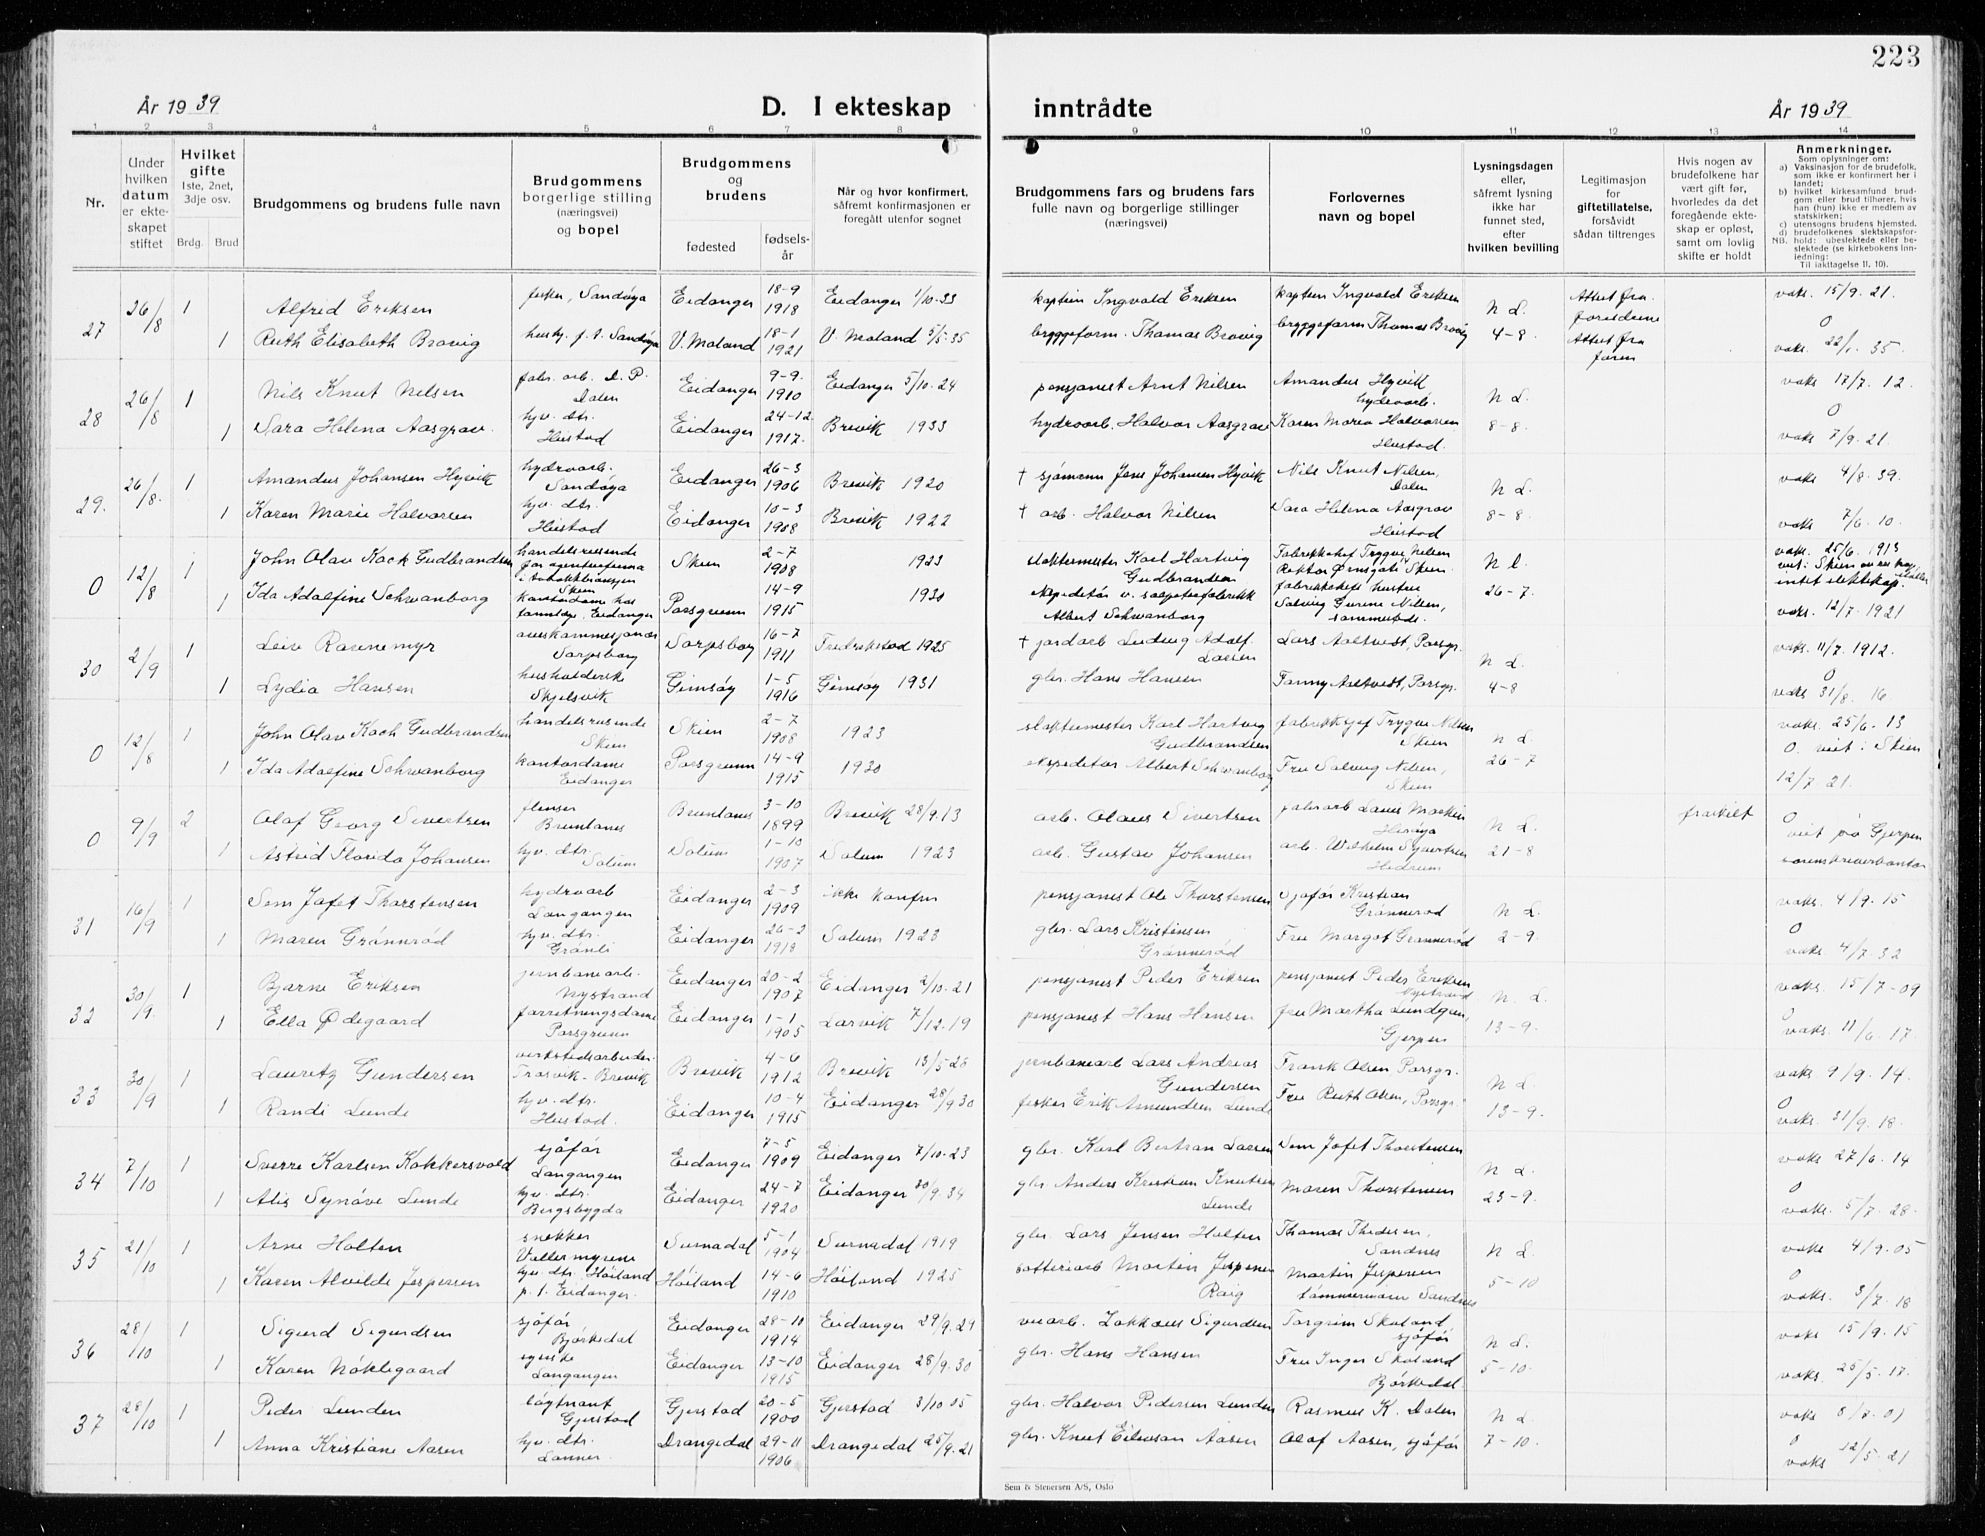 223
År 1939
D. I ekteskap
inntrådte
År 1939
1 2 3 4 5 6 7 8 9 10 11 12 13 14
Nr.
Under hvilken datum er ekteskapet stiftet
Hvilket gifte
1ste, 2net, 3dje osv.
Brdg. Brud
Brudgommens og brudens fulle navn
Brudgommens borgerlige stilling (næringsvei) og bopel
Brudgommens og brudens
fødested
fødselsår
Når og hvor konfirmert, såfremt konfirmasjonen er foregått utenfor sognet
Brudgommens fars og brudens fars fulle navn og borgerlige stillinger (næringsvei)
Forlovernes navn og bopel
Lysningsdagen eller, såfremt lysning ikke har funnet sted, efter hvilken bevilling
Legitimasjon for giftetillatelse, forsåvidt sådan tiltrenges
Hvis nogen av brudefolkene har vært gift før, hvorledes da det foregående ekteskap er opløst, samt om lovlig skifte er holdt
Anmerkninger.
Som oplysninger om:
a) Vaksinasjon for de brudefolk, som ikke er konfirmert her i landet;
b) hvilket kirkesamfund brudgom eller brud tilhører, hvis han (hun) ikke er medlem av statskirken;
c) utensogns brudens hjemsted.
d) brudefolkenes slektskapsforhold: ubeslektede eller beslektede (se kirkebokens innledning:
NB.
Til iakttagelse 11, 10).
27 26/8 1 Alfrid Eriksen fisker, Sandøya Eidanger 18-9 1918 Eidanger 1/10-33 kaptein Ingvald Eriksen kaptein Ingvald Eriksen N L. 4-8 Attest fra foreldrene vaks. 15/9. 21.
1 Ruth Elisabeth Brovig hush. p. t. Sandøya V. Moland 18-1 1921 V. Moland 5/5-35 bryggeform. Thomas Brovig bryggeform Thomas Brovig Attest fra faren 0 vaks. 22/1. 35.
28 26/8 1 Nils Knut Nilsen fabr. arb. D. P. Dalen Eidanger 9-9. 1910 Eidanger 5/10-24 pensjonist Arnt Nilsen Amandus Hyvik hydroarb. N L. 8-8. vaks 17/7. 12.
1 Sara Helena Aasgrav hjv. dtr. Heistad Eidanger 24-12. 1917. Brevik 1933 hydroarb. Halvor Aasgrav Karen Marie Halvorsen Heistad. 0 vaks 7/9. 21.
29. 26/8. 1 Amandus Johansen Hyvik hydroarb. Sandøya Eidanger 26-3 1906 Brevik 1920 † sjømann Jens Johansen Hyvik Nils Knut Nilsen, Dalen N L. 8-8. vaks 4/8. 39.
1 Karen Marie Halvorsen hjv. dtr. Heistad Eidanger 10-3 1908 Brevik 1922 † arb. Halvor Nilsen Sara Helena Aasgrav Heistad vaks. 7/6. 10.
0 12/8 1 John Olav Kock Gudbrandsen handelsreisende for agenturfirma i tobakkbransjen Skien Skien 2-7 1908 1923 slaktermester Karl Hartvig Gudbrandsen Fabrikksjef Trygve Nilsen Rektor Ørnsgate Skien. N L. 26-7. vaks. 25/6. 1913 viet i Skien intet slektskap.
1 Ida Adolfine Schwanborg kontordame Eidanger Porsgrunn 14-9 1915 1930 ekspeditør v. salpeterfabrikk Albert Schwanborg fabrikksjefs hustru Solveig Nilsen, sammesteds. vaks. 12/7. 1921
30 2/9 1 Leiv Ravnemyr Sarpsborg Sarpsborg 16-7 1911 Fredrikstad 1925 † jordarb Ludvig Adolf Larsen Lars Aaltvedt, Porsgr. N L. 4-8 vaks. 11/7. 1912.
1 Lydia Hansen husholderske Skjelsvik Gimsøy 1-5 1916 Gimsøy 1931 gbr. Hans Hansen Fanny Aaltvedt, Porsgr. 0 vaks 31/8. 16.
0 12/8 1 John Olav Kock Gudbrandsen handelsreisende Skien Skien 2-7 1908 1923 slaktermester Karl Hartvig Gudbrandsen fabrikksjef Trygve Nilsen Skien N L. 26-7 vaks. 25/6-13
1 Ida Adolfine Schwanborg kontordame Eidanger Porsgrunn 14-9 1915 1930 ekspeditør Albert Schwanborg Fru Solveig Nilsen, Skien 0. viet i Skien 12/7 21.
0 9/9 2 Olaf Georg Sivertsen flenser Brunlanes Brunlanes 3-10 1899 Brevik 28/9.13 arb. Olaus Sivertsen Herøya N L. 21-8 fraskilt 0 viet på Gjerpen sorenskriverkontor
1 Astrid Florida Johansen hjv. dtr. Solum Solum 1-10 1907 Solum 1923 arb. Gustav Johansen arb. Wilhelm Syvertsen Hedrum
31 16/9 1 Sem Jofet Thorstensen hydroarb Langangen Eidanger 2-3 1909 ikke konfirm pensjonist Ole Thorstensen sjøfør Kristian Grønnerød N L. 2-9. vaks. 4/9. 15
1 Maren Grønnerød hjv. dtr. Grønli Eidanger 26-2 1918 Solum 1923 gbr. Lars Kristensen Grønnerød Fru Margot Grønnerød 0 vaks. 4/7. 32
32 30/9. 1 Bjarne Eriksen jernbanearb. Nystrand Eidanger 20-2 1907 Eidanger 2/10.21 pensjonist Peder Eriksen pensjonist Peder Eriksen Nystrand N. L. 13-9. vaks. 15/7-09
1 Ella Ødegaard forretningsdame Porsgrunn Eidanger 1-1 1905 Larvik 7/12.19 pensjonist Hans Hansen fru Martha Lundgren, Gjerpen 0 vaks. 11/6. 17.
33 30/9 1 Lauretz Gundersen verkstedsarbeider Trosvik-Brevik Brevik 4-6 1912 Brevik 13/5-26 jernbanearb Lars Andreas Gundersen Frank Olsen Porsgr. N L. 13-9. vaks. 9/9. 14.
1 Randi Lunde hjv. dtr. Heistad. Eidanger 10-4 1915 Eidanger 28/9.30 fisker Erik Amundsen Lunde Fru Ruth Olsen, Porsgr. 0 vaks. 31/9. 18.
34 7/10 1 Sverre Karlsen Kokkersvold sjøfør Langangen Eidanger 7-5 1909 Eidanger 7/10-23 gbr. Karl Bertran Larsen Sem Jofet Thorstensen N L. 23-9. vaks. 27/6. 14
1 Alis Synøve Lunde hjv. dtr. Bergsbygda Eidanger 24-7 1920 Eidanger 30/9.34 gbr. Anders Kristian Knutsen Lunde Maren Thorstensen 0 vaks. 5/7. 28.
35 21/10 1 Arne Holten snekker Vallermyrene Surnadal 5-1 1904 Surnadal 1919 gbr. Lars Jensen Holten Thomas Thidesen, Sandnes N L. 5-10 vaks 4/9. 05
1 Karen Alvilde Jespersen hjv. dtr. Høiland p. t. Eidanger. Høiland 14-6 1910 Høiland 1925 Martin Jespersen Roig Martin Jespersen tømmermann Sandnes 0 vaks. 3/7. 18
36 28/10 1 Sigurd Sigurdsen sjøfør Bjørkedal Eidanger 28-10 1914 Eidanger 29/9.29 veiarb. Zakkeus Sigurdsen Torgrim Skoland, sjøfør N L. 5-10. vaks 15/9. 15
1 Karen Nøklegaard syerske Langangen Eidanger 13-10 1915 Eidanger 28/9.30 gbr. Hans Hansen Fru Inger Skoland Bjørkedal. vaks. 25/5. 17.
37 28/10 1 Peder Lunden løytnant Gjerstad Gjerstad 20-5 1900 Gjerstad 3/10 05 gbr. Halvor Pedersen Lunden Rasmus K. Dalen N L. 7-10. vaks 8/7. 01
1 Anna Kristiane Aasen hjv. dtr. Lanner Drangedal 29-11 1906 Drangedal 25/9.21 gbr. Knut Eilevsen Aasen Olaf Aasen, sjøfør 0 vaks 12/5. 21
Sem & Stenersen A/S, Oslo